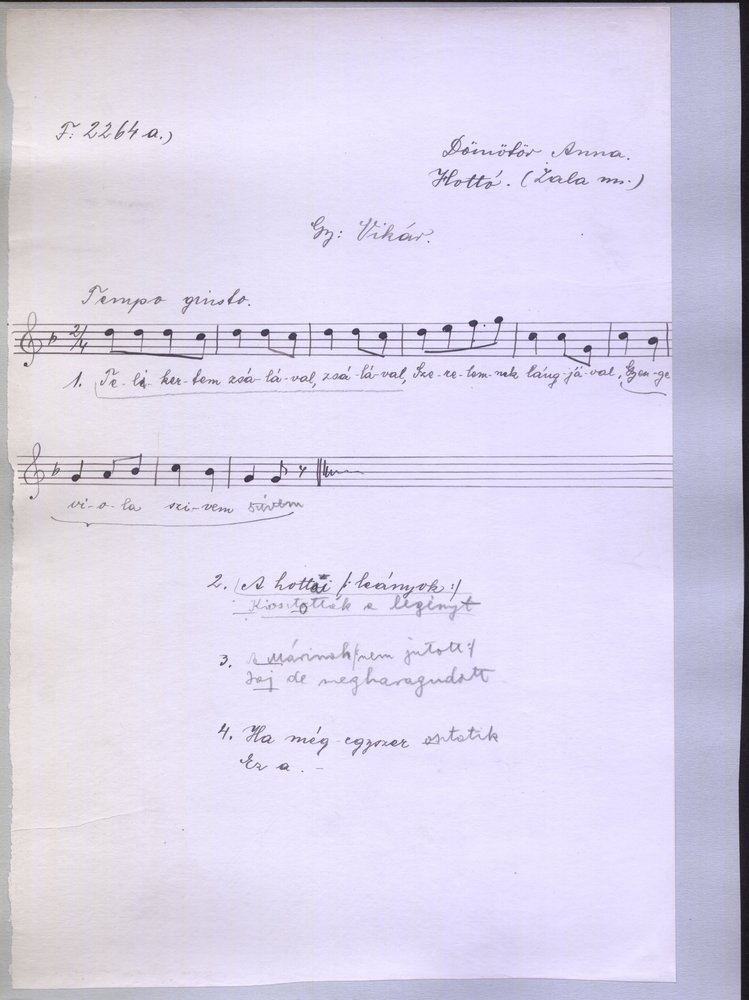 F: 2264 a.)
Dömötör Anna.
Hottó. (Zala m.)
Gy: Vikár.
Tempo giusto.
2/4
1. Te-li ker-tem zsá-lá-val, zsá-lá-val, Sze-re-lem-nek láng-já-val, Gyen-ge
vi-o-la szi-vem szivem
2. A hottói /: leányok :/
Kiosztották a legényt
3. A Márinak /: nem jutott :/
Jaj de megharagudott
4. Ha még egyszer osztatik
Ez a . –